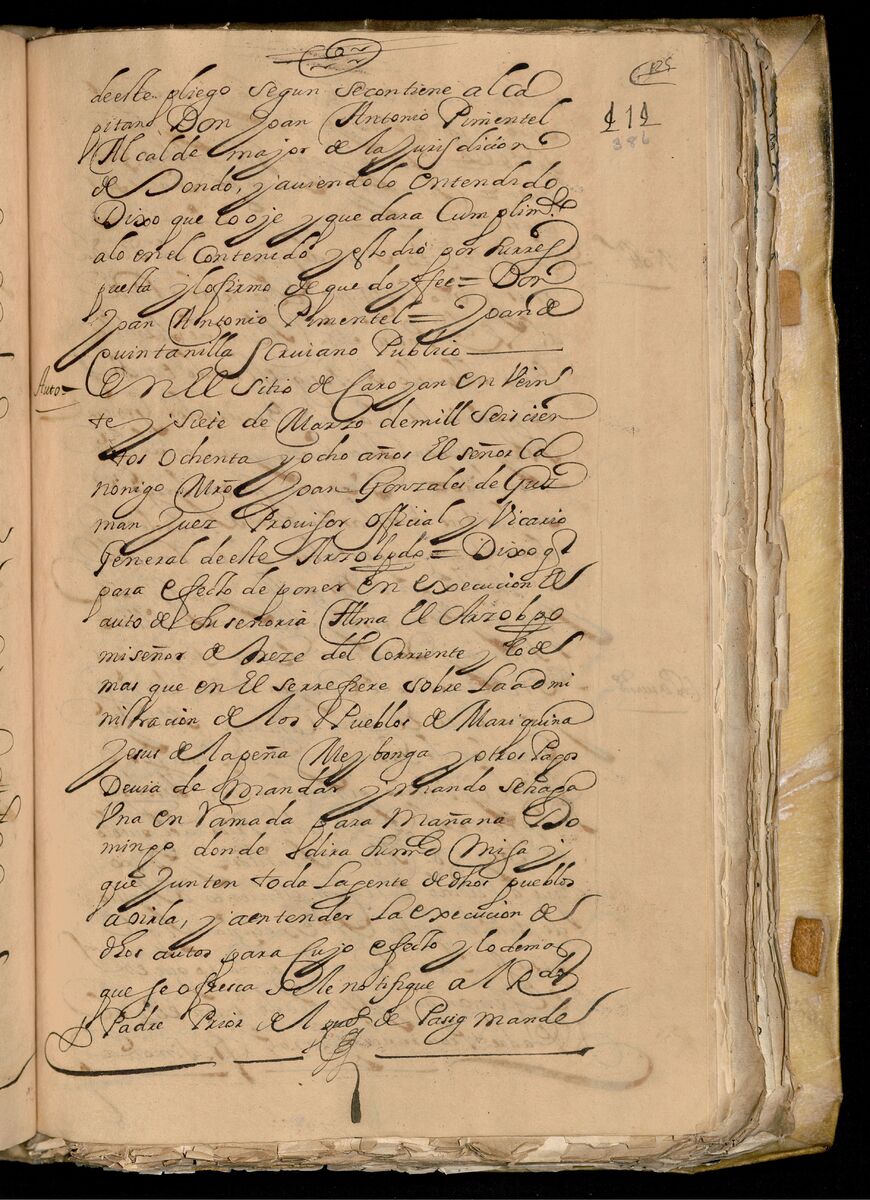 125
111
386
deeste pliego segun secontiene al ca
pitano Don Joan Antonio Pimentel
Alcalde major de la Jurisdicion
de Dondo, y auiendolo entendido
Dixo que lo oje y que dara Cumplim.to
alo en el Contenido y esto dio por Surres
puesta y lo firmo de que doy fee = Don
Joan Antonio Pimentel = Joan de
quintanilla Scruiano Publico
Auto
En El sitio de Caro yan en Vein
te y siete de Marzo demill Seiscien
tos ochenta y ocho años El señor Ca
nonigo Mrō Joan Gonzales de Guz
man Juez Prouisor official y Vicario
General deeste Arzobpdo = Dixo q̄
para efecto de poner en execucion El
auto de Suseñoria Illma El Arzobpo
miseñor de treze del Corriente y lo de
mas que en El serrefiere sobre la admi
nistracion de los Pueblos de Mariquina
Jesus de la peña Meybonga y otros Pagos
Deuia de mandar y mando sehaga
Vna en Ramada para Mañana Do
mingo donde dira Sumrd Misa y
que Junten toda la gente de dhos pueblos
a oirla, y aentender la execucion de
dhos autos para Cujo efecto y lo demas
que se ofresca se le notifique al Rdo
Padre Prior del de Pasig mande